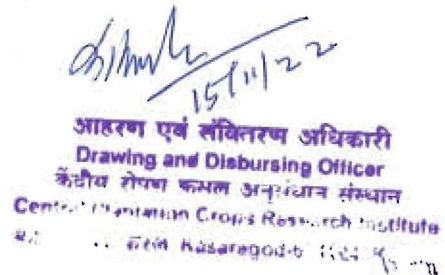 15/11/22
आहरण एवं संवितरण अधिकारी
Drawing and Disbursing Officer
केंद्रीय रोपण फसल अनुसंधान संस्थान
Central Plantation Crops Research Institute
Kasaragod